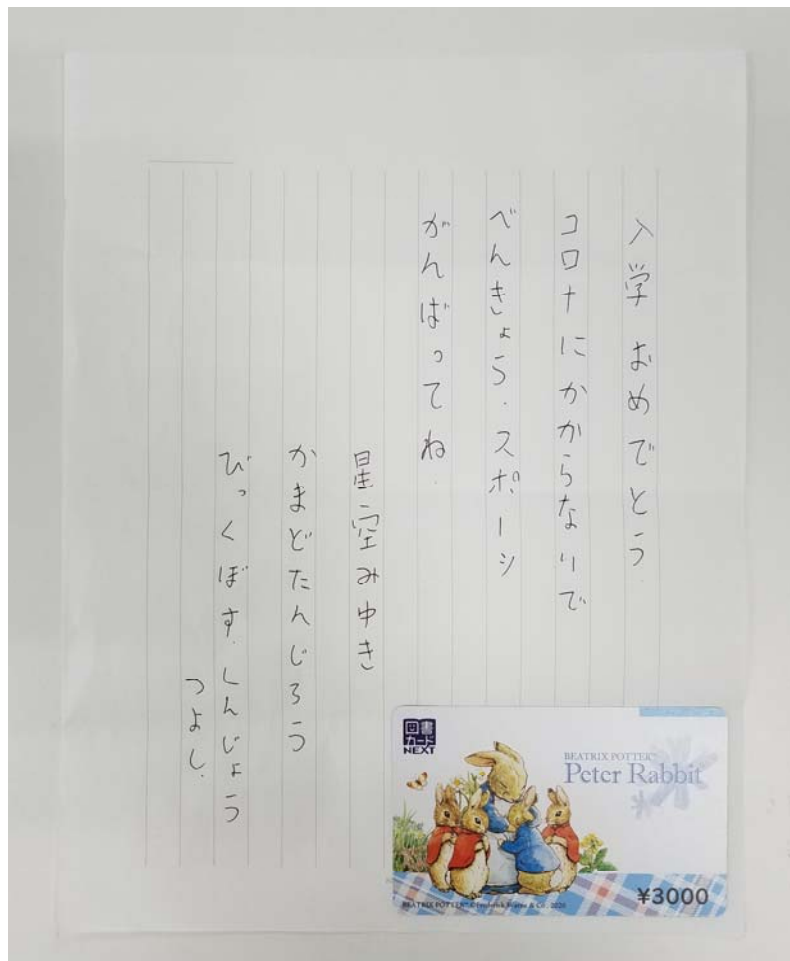 入学 おめでとう
コロナにかからないで
べんきょう.スポーツ
がんばってね.
星空みゆき
かまどたんじろう
びっくぼす.しんじょう
つよし.
図書
カード
NEXT
BEATRIX POTTER™
Peter Rabbit
¥3000
BEATRIX POTTER™ © Frederick Warne & Co., 2020